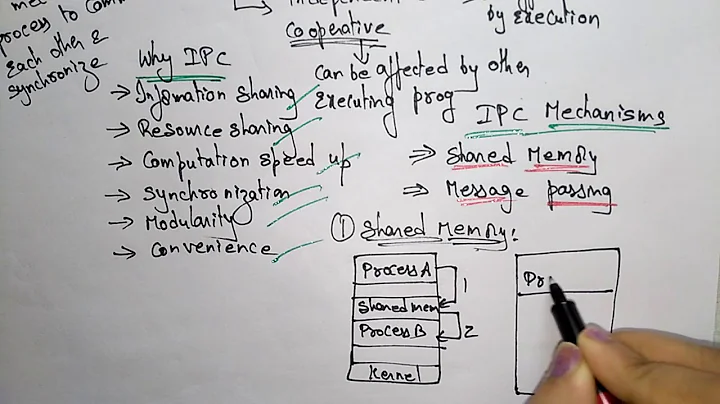 process to Com
each other &
synchronize
Independent
Cooperative
by execution
can be affected by other
executing prog
Why IPC
→ Information sharing
→ Resource sharing
→ Computation speed up
→ Synchronization
→ Modularity
→ Convenience
IPC Mechanisms
⇒ Shared Memory
⇒ Message passing
① Shared Memory:
Process A
1
Shared mem
Process B
2
Kernel
Pr